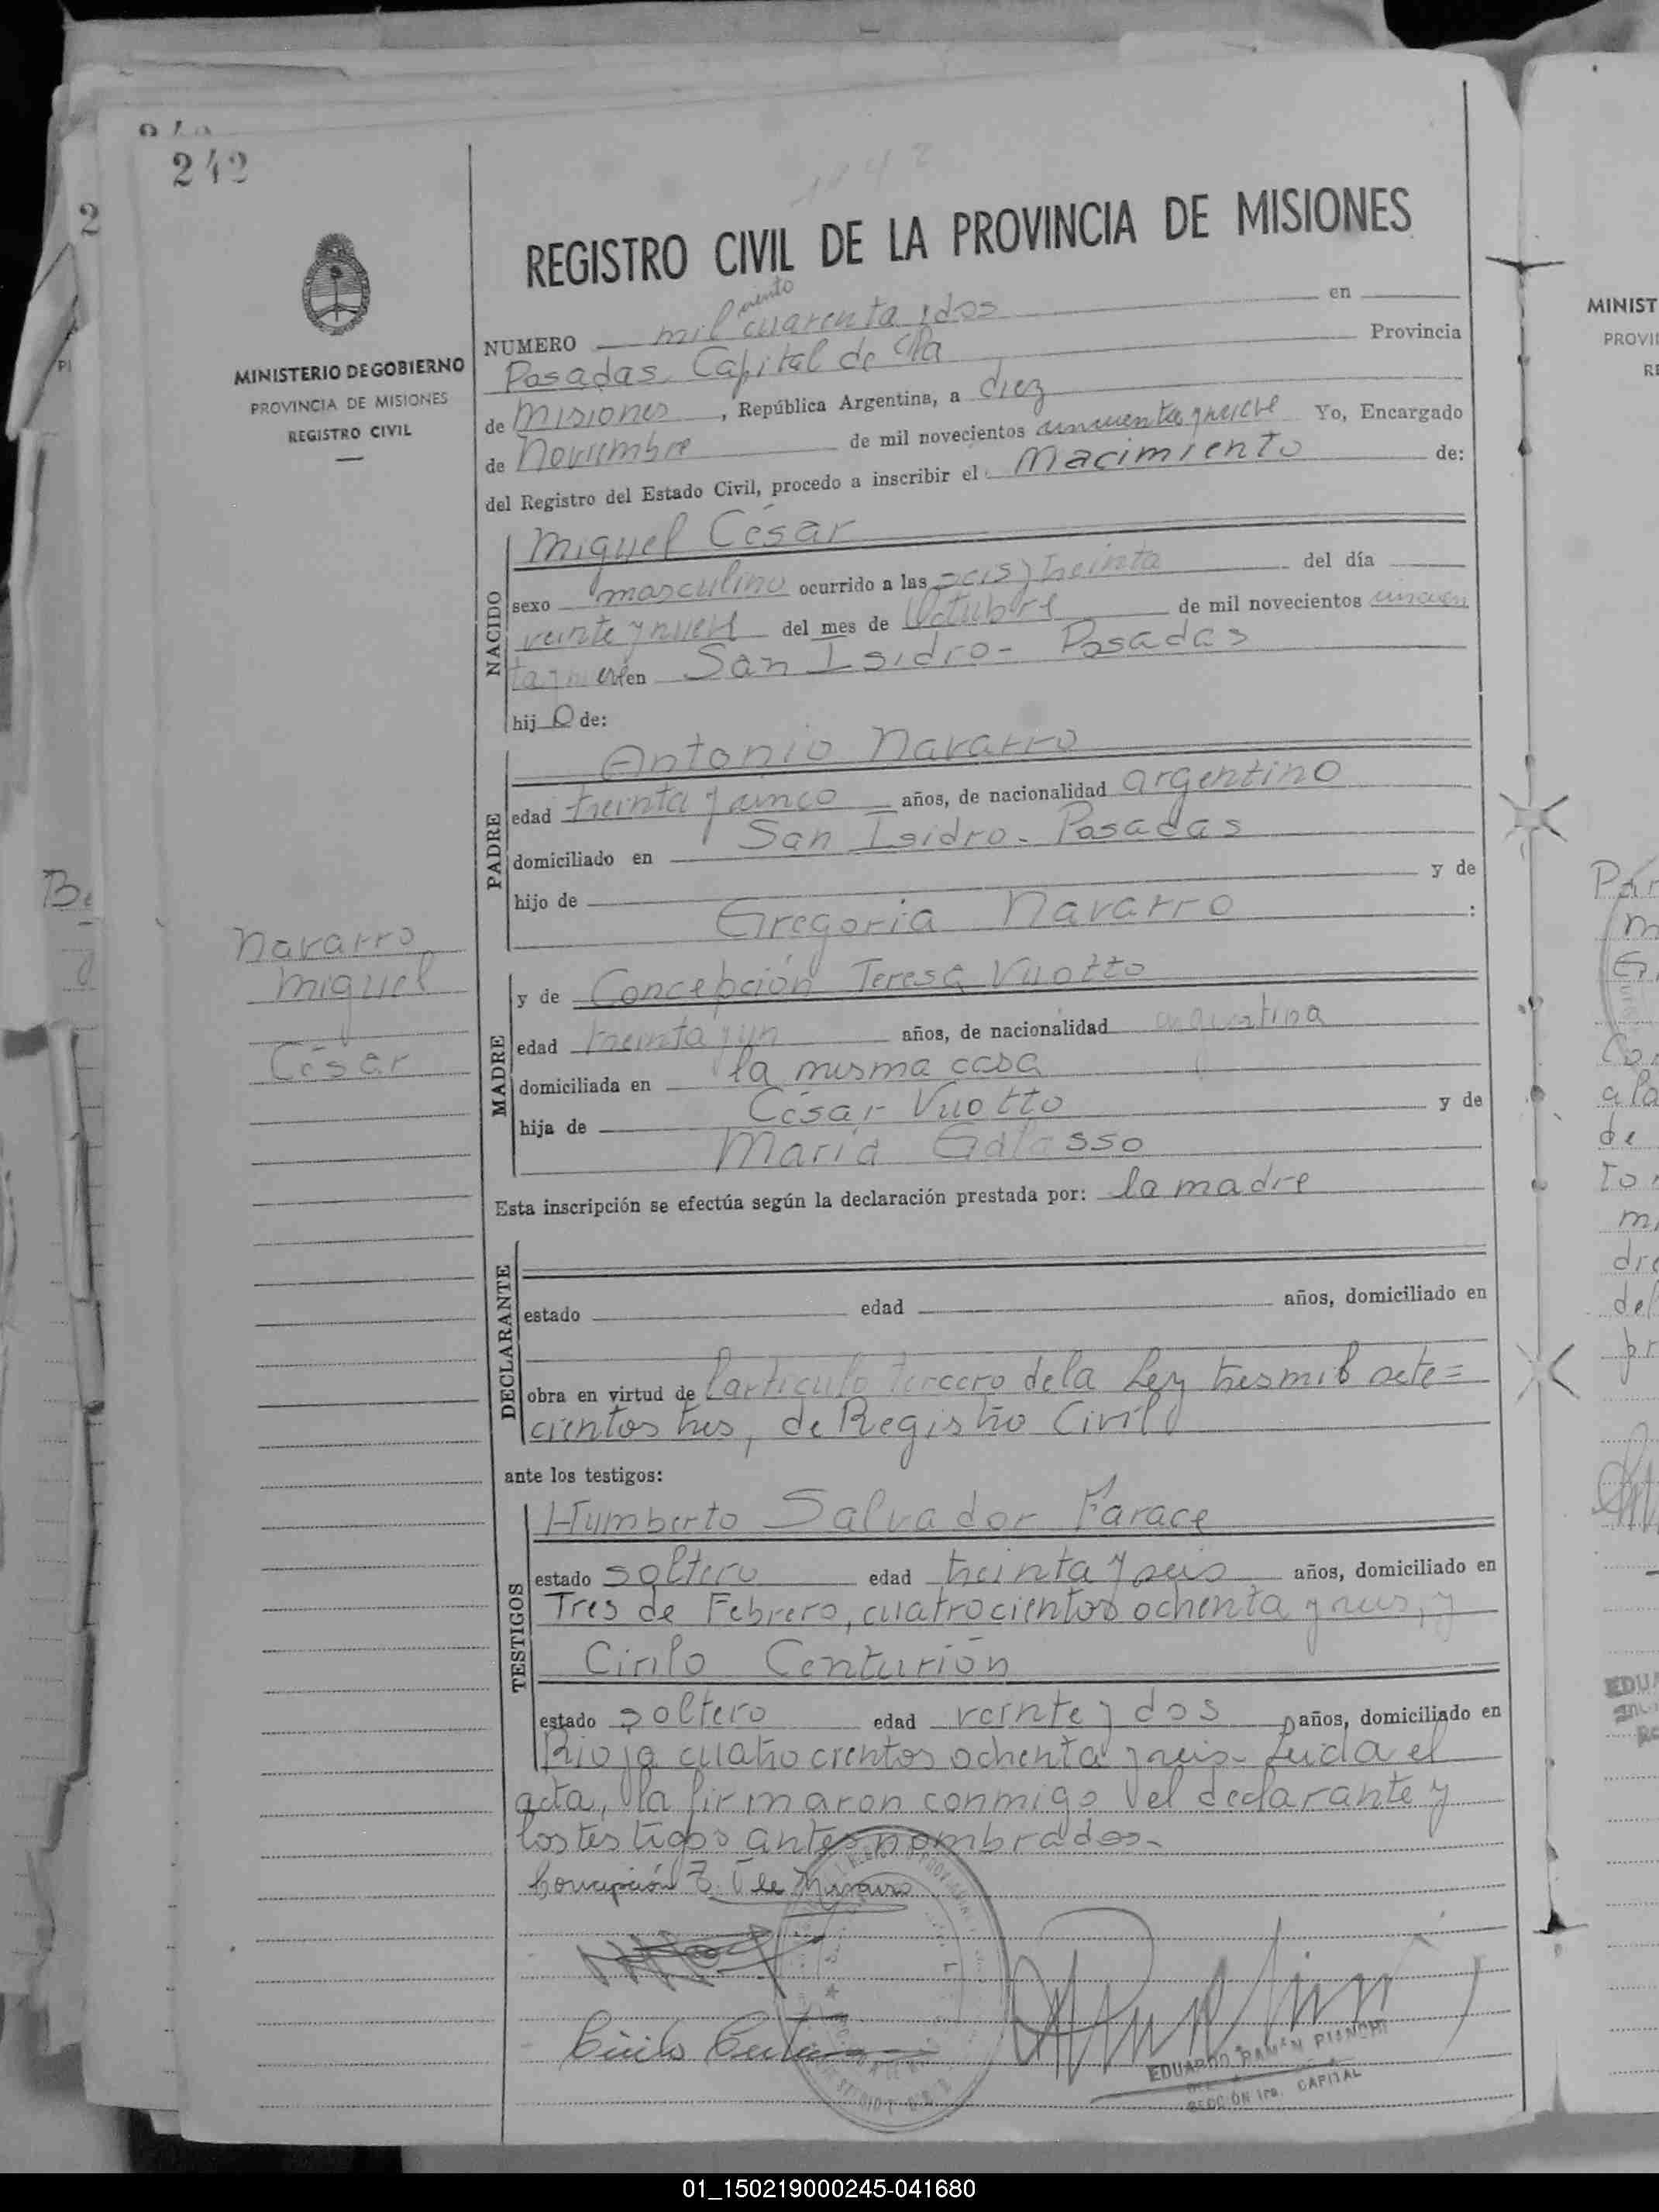 242
2
1142
REGISTRO CIVIL DE LA PROVINCIA DE MISIONES
MINISTERIO DE GOBIERNO
PROVINCIA DE MISIONES
REGISTRO CIVIL
ciento
NUMERO mil cuarenta y dos en
Posadas Capital de la Provincia
de Misiones, República Argentina, a diez
de Noviembre de mil novecientos cincuenta y nueve Yo, Encargado
del Registro del Estado Civil, procedo a inscribir el Nacimiento de:
NACIDO
Miguel César
sexo masculino ocurrido a las seis y treinta del día
veinte y nueve del mes de Octubre de mil novecientos cincuen
ta y nueve en San Isidro - Posadas
hijo de:
PADRE
Antonio Navarro
edad treinta y cinco años, de nacionalidad argentino
domiciliado en San Isidro - Posadas
hijo de y de
Gregoria Navarro :
Navarro
Miguel
César
MADRE
y de Concepción Teresa Vuotto
edad treinta y un años, de nacionalidad argentina
domiciliada en la misma casa
hija de César Vuotto y de
María Galasso
Esta inscripción se efectúa según la declaración prestada por: la madre
DECLARANTE
estado edad años, domiciliado en
obra en virtud de l artículo tercero de la Ley tres mil sete=
cientos tres, de Registro Civil
ante los testigos:
TESTIGOS
Humberto Salvador Farace
estado soltero edad treinta y seis años, domiciliado en
Tres de Febrero, cuatrocientos ochenta y seis, y
Cirilo Centurión
estado soltero edad veinte y dos años, domiciliado en
Rioja cuatrocientos ochenta y seis - Leida el
acta, la firmaron conmigo el declarante y
los testigos antes nombrados.-
Concepción T. V de Navarro
Cirilo
EDUARDO RAMÓN PIANCHI
SECCIÓN 1ra. CAPITAL
MINIST
01_150219000245-041680